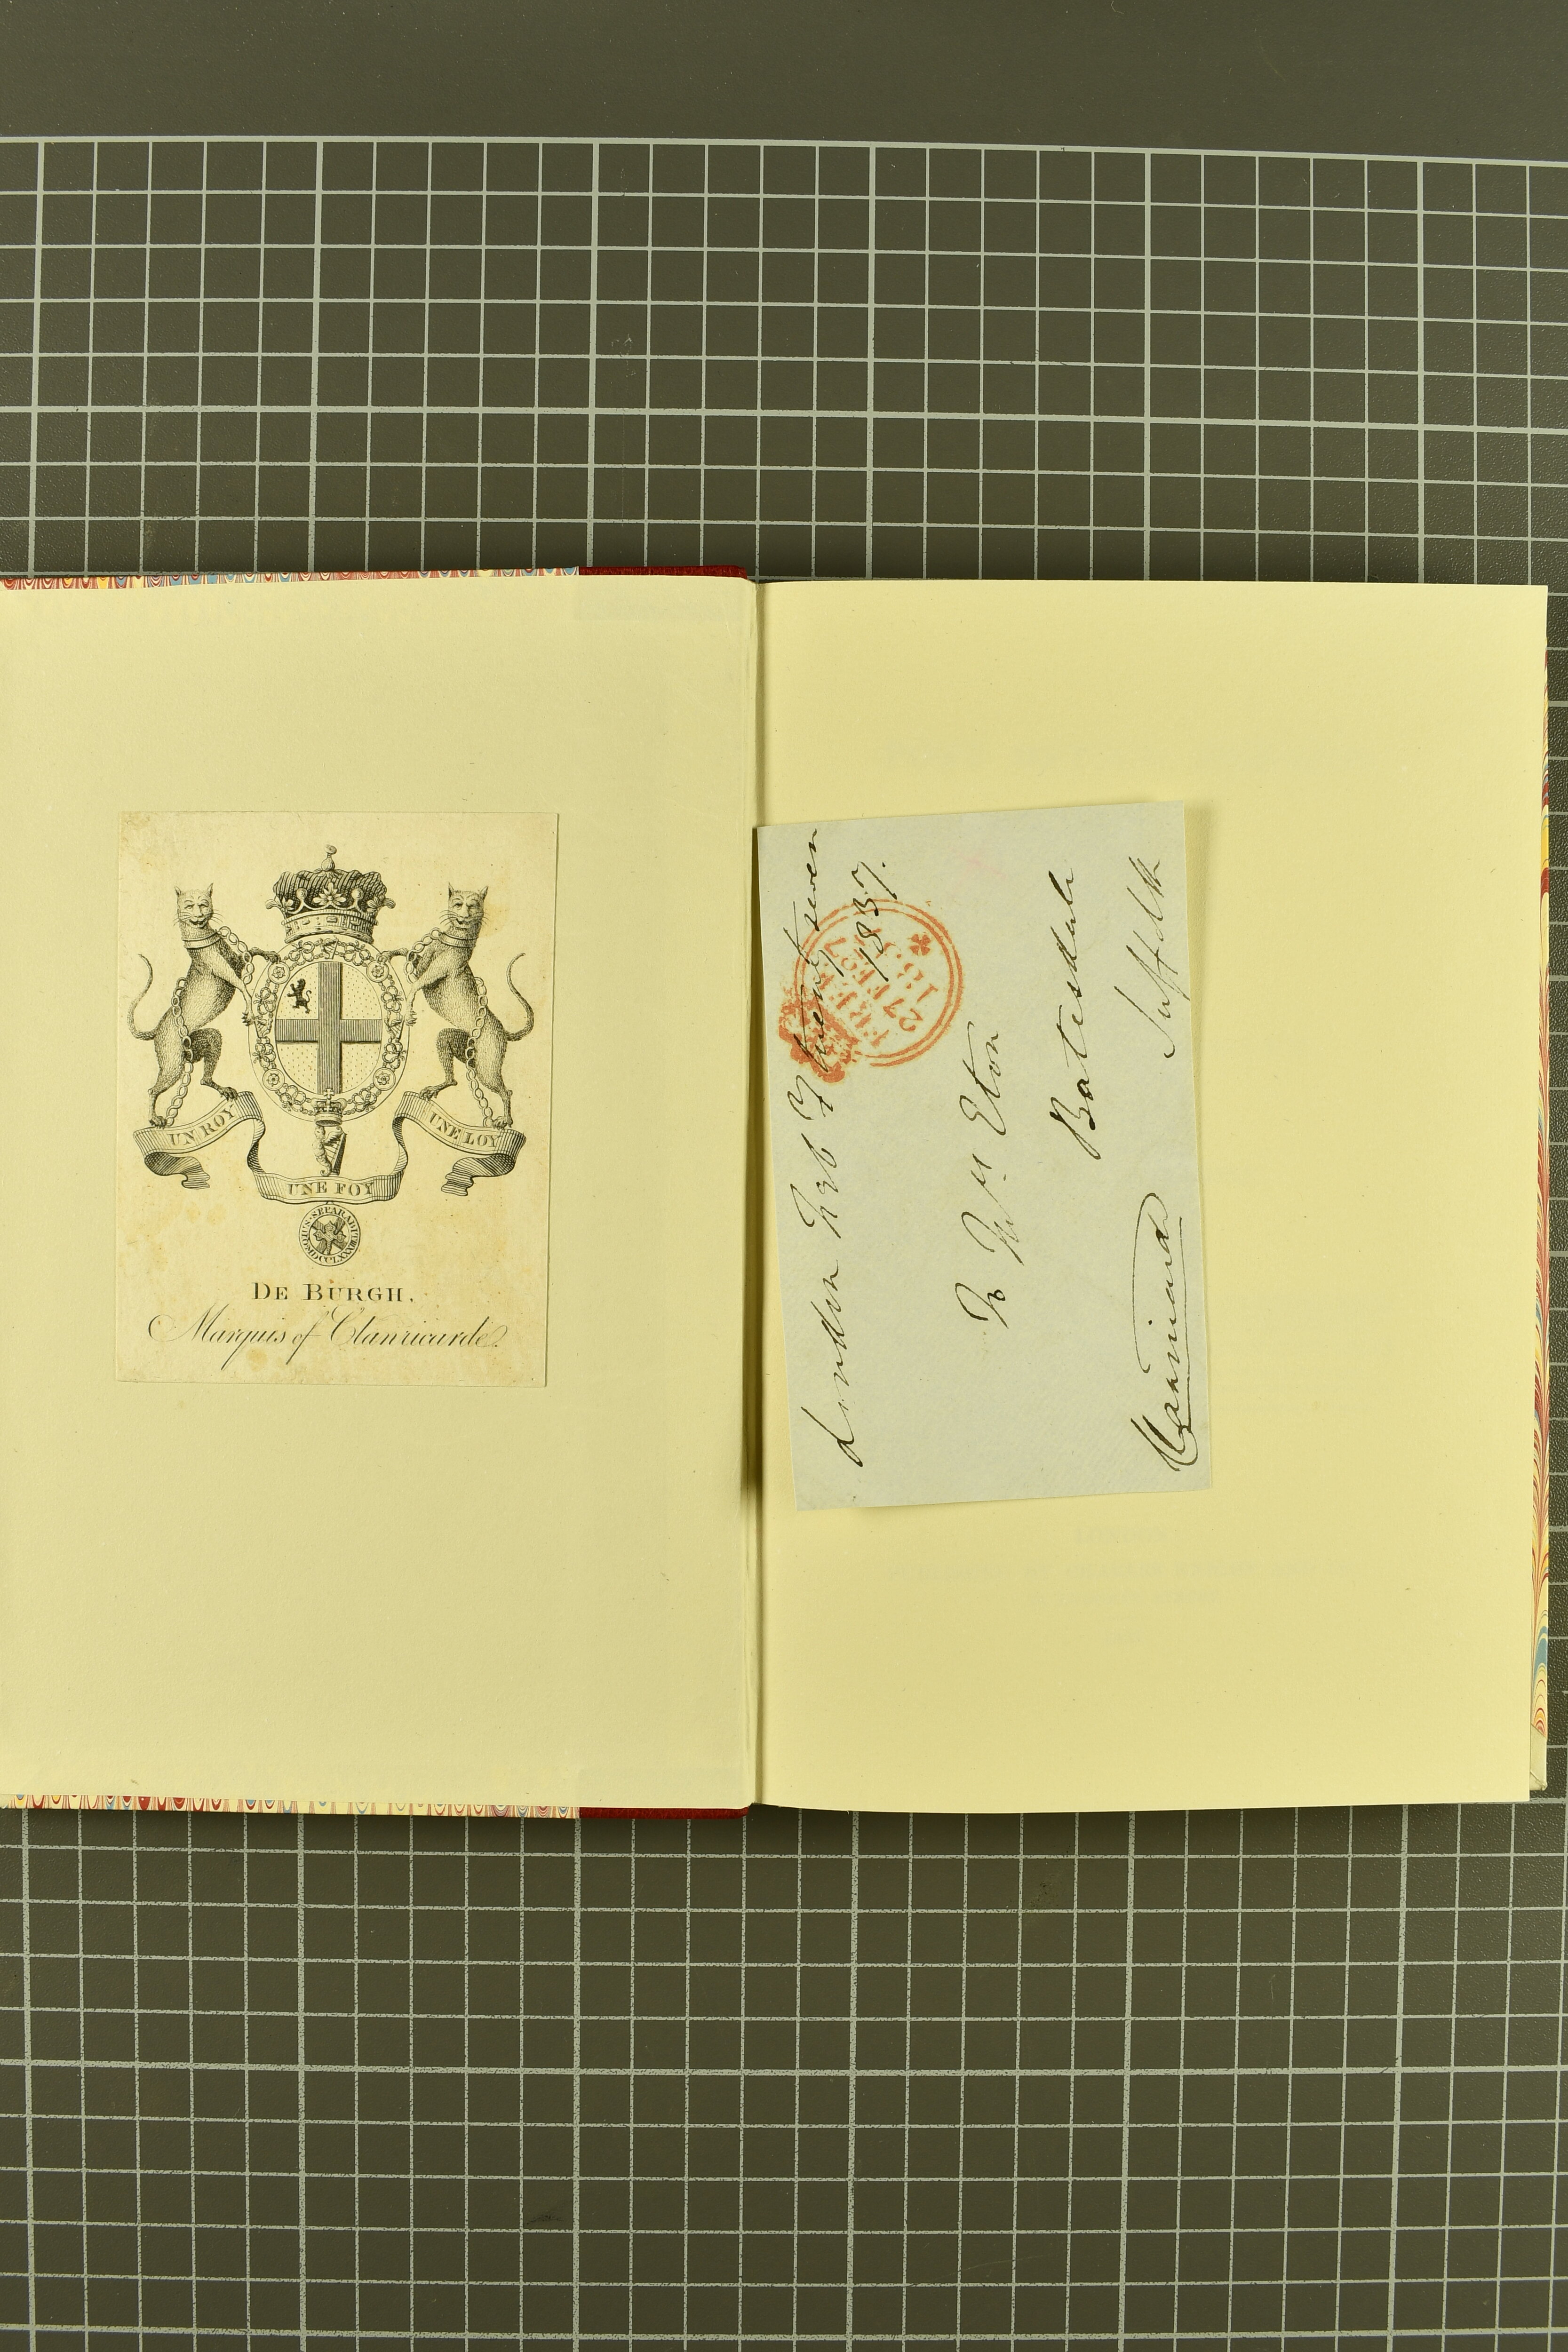 UN ROY
UNE LOY
UNE FOY
QUIS SEPARABIT MDCCLXXXIII
DE BURGH,
Marquis of Clanricarde.
London Feb Y twenty seven
1837.
FREE
27 FE 27
1837
To Mrs Eton
Botesdale
Suffolk
Clanricarde